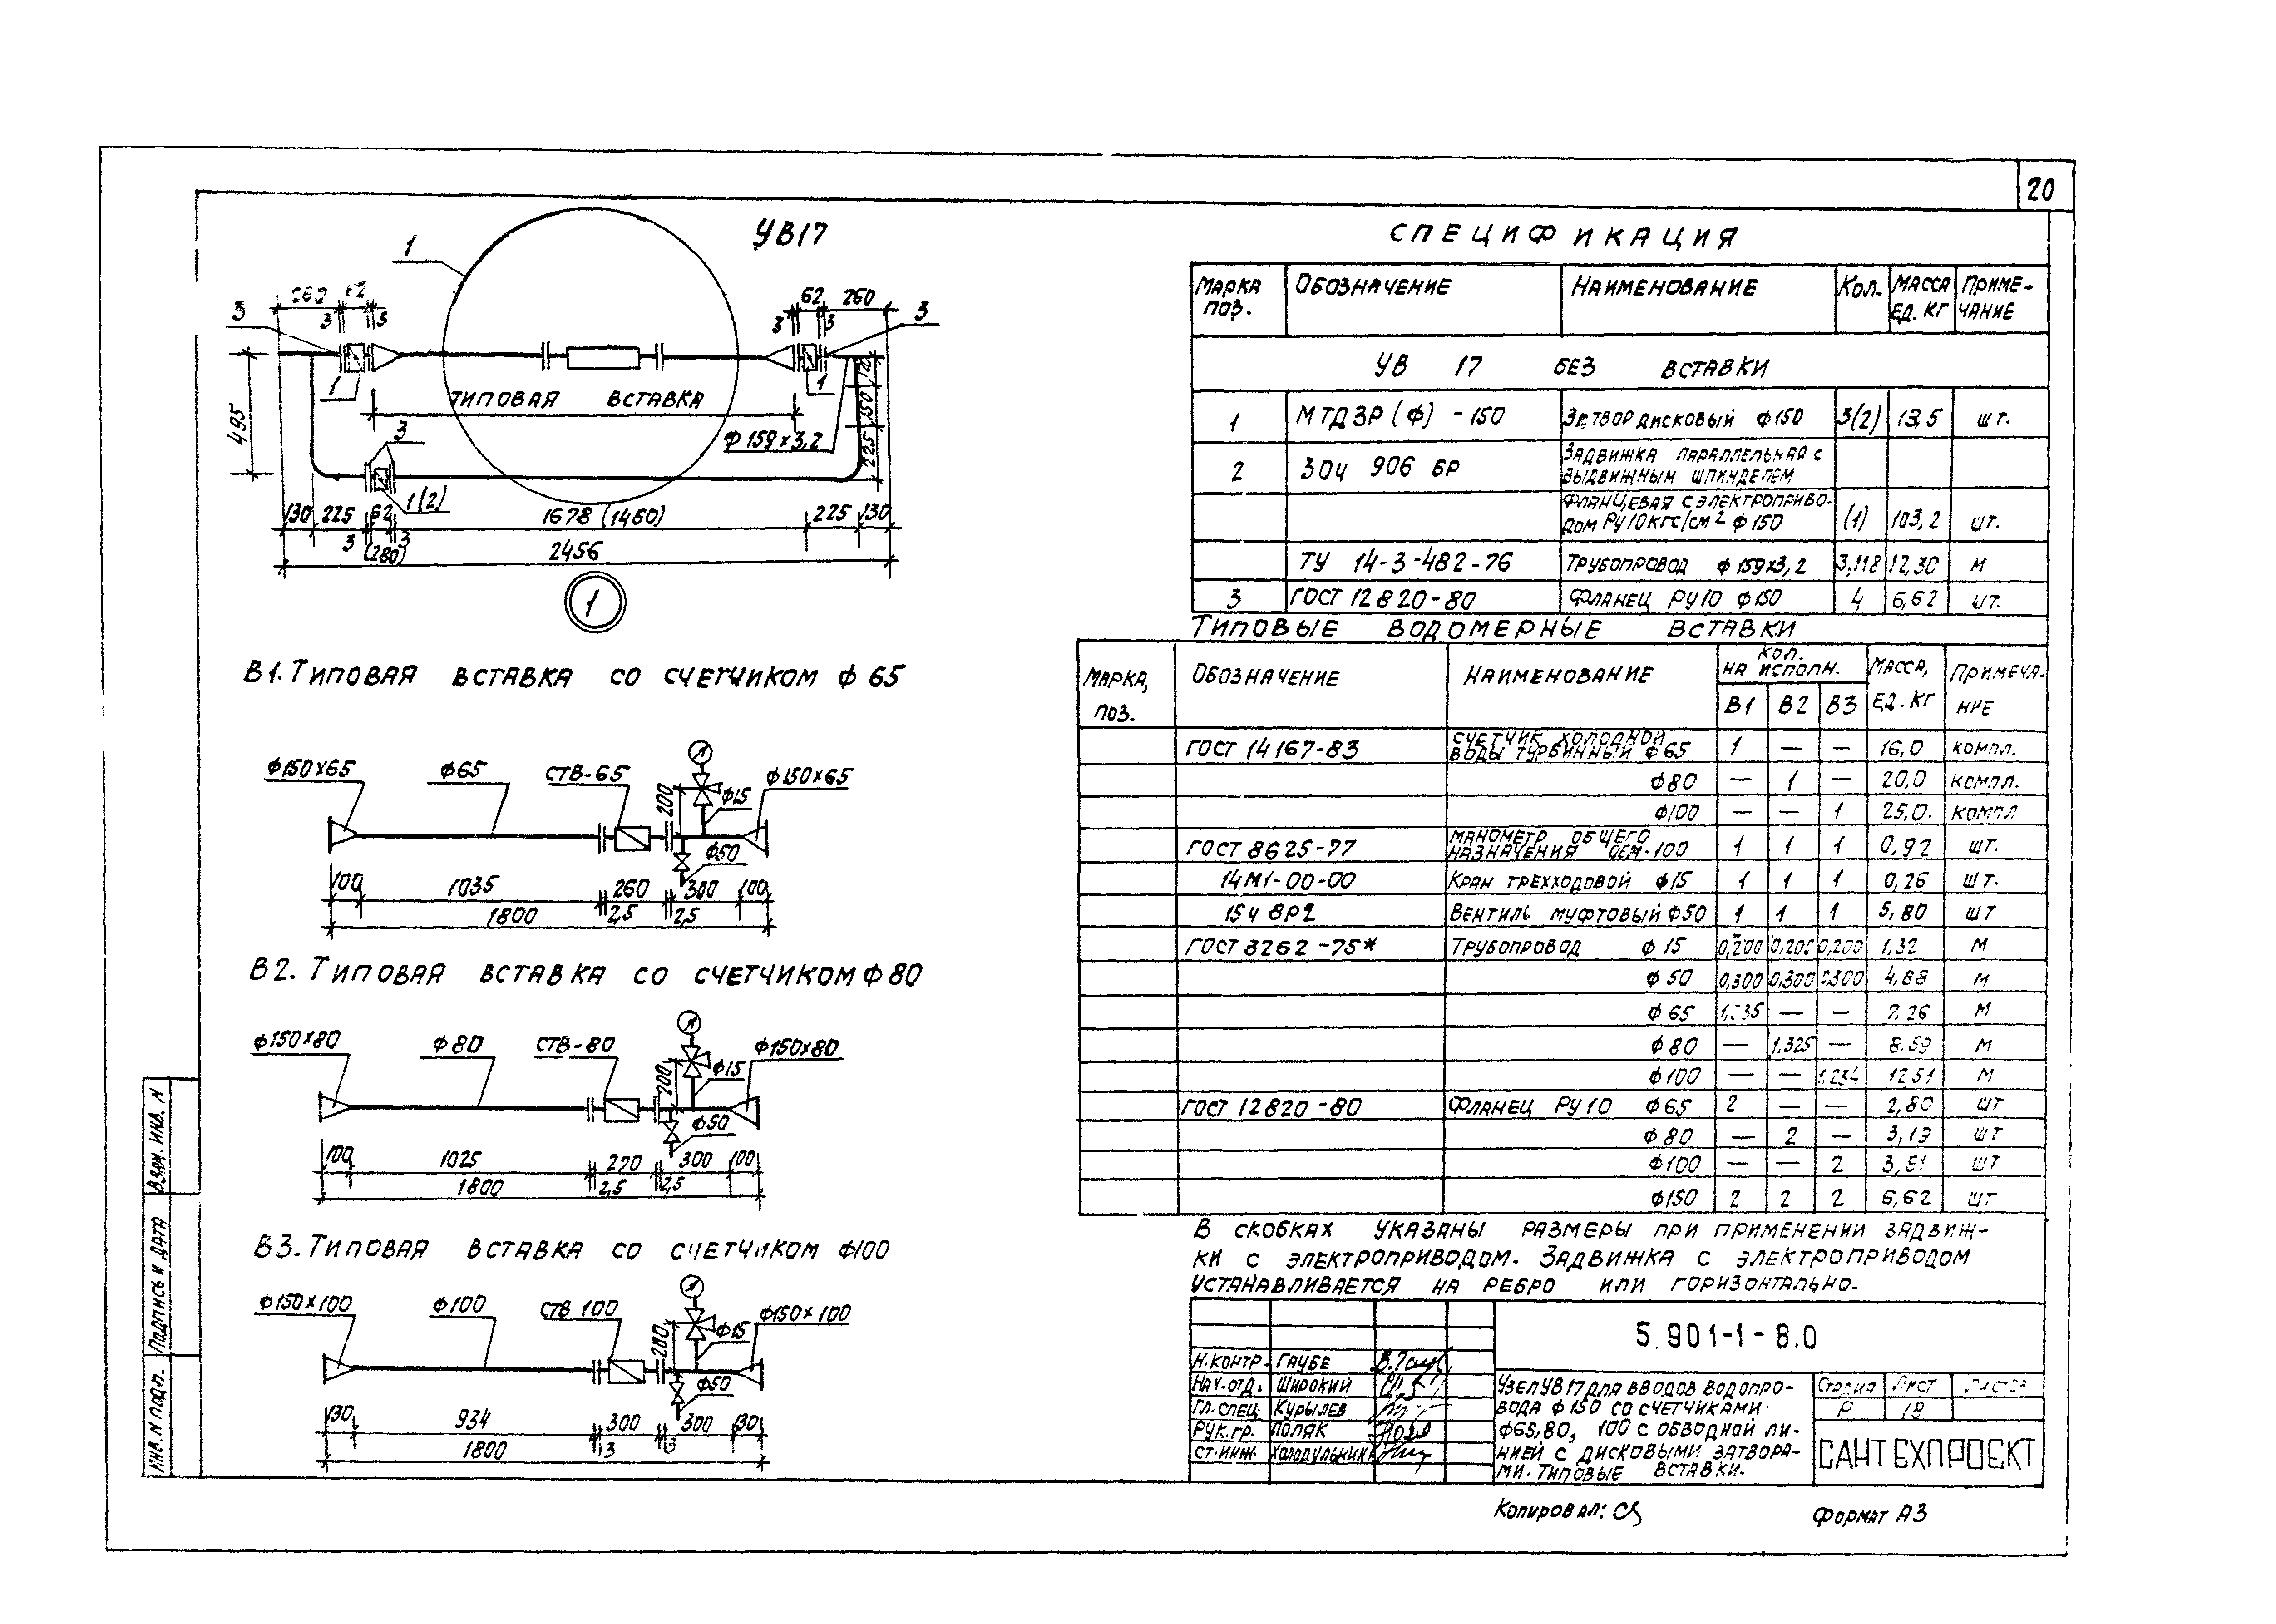 20
УВ17
1
260 62 62 260
3 3 3 3 3
1 1
ТИПОВАЯ ВСТАВКА
495
3
Ф159х3,2
150
225
1(2)
130 225 62 1678 (1460) 225 130
3 (280) 3
2456
1
В1. ТИПОВАЯ ВСТАВКА СО СЧЕТЧИКОМ Ф 65
Ф150х65 Ф65 СТВ-65 200 Ф15 Ф150х65
Ф50
100 1035 260 300 100
2,5 2,5
1800
В2. ТИПОВАЯ ВСТАВКА СО СЧЕТЧИКОМ Ф 80
Ф150х80 Ф80 СТВ-80 200 Ф15 Ф150х80
Ф50
100 1025 270 300 100
2,5 2,5
1800
В3. ТИПОВАЯ ВСТАВКА СО СЧЕТЧИКОМ Ф100
Ф150х100 Ф100 СТВ 100 200 Ф15 Ф150х100
Ф50
130 934 300 300 130
3 3
1800
СПЕЦИФИКАЦИЯ
МАРКА ПОЗ. ОБОЗНАЧЕНИЕ НАИМЕНОВАНИЕ КОЛ. МАССА ЕД. КГ ПРИМЕ-ЧАНИЕ
УВ 17 БЕЗ ВСТАВКИ
1 МТДЗР(Ф) - 150 ЗАТВОР ДИСКОВЫЙ Ф150 3(2) 13,5 ШТ.
2 30Ч 906 БР ЗАДВИЖКА ПАРАЛЛЕЛЬНАЯ С
ВЫДВИЖНЫМ ШПИНДЕЛЕМ
ФЛАНЦЕВАЯ С ЭЛЕКТРОПРИВО-
ДОМ РУ10КГС/СМ2 Ф150 (1) 103,2 ШТ.
ТУ 14-3-482-76 ТРУБОПРОВОД Ф159х3,2 3,118 12,30 М
3 ГОСТ 12820-80 ФЛАНЕЦ РУ10 Ф150 4 6,62 ШТ.
ТИПОВЫЕ ВОДОМЕРНЫЕ ВСТАВКИ
МАРКА, ПОЗ. ОБОЗНАЧЕНИЕ НАИМЕНОВАНИЕ КОЛ. НА ИСПОЛН. МАССА, ЕД. КГ ПРИМЕЧА-НИЕ
В1 В2 В3
ГОСТ 14167-83 СЧЕТЧИК ХОЛОДНОЙ
ВОДЫ ТУРБИННЫЙ Ф65 1 — — 16,0 КОМПЛ.
Ф80 — 1 — 20,0 КОМПЛ.
Ф100 — — 1 25,0. КОМПЛ
ГОСТ 8625-77 МАНОМЕТР ОБЩЕГО
НАЗНАЧЕНИЯ ОБМ-100 1 1 1 0,92 ШТ.
14М1-00-00 КРАН ТРЕХХОДОВОЙ Ф15 1 1 1 0,26 ШТ.
15Ч 8Р2 ВЕНТИЛЬ МУФТОВЫЙ Ф50 1 1 1 5,80 ШТ
ГОСТ 3262-75* ТРУБОПРОВОД Ф 15 0,200 0,200 0,200 1,32 М
Ф 50 0,300 0,300 0,300 4,88 М
Ф 65 1,035 — — 7.26 М
Ф 80 — 1,325 — 8.59 М
Ф100 — — 1,234 12 51 М
ГОСТ 12820-80 ФЛАНЕЦ РУ10 Ф65 2 — — 2,80 ШТ
Ф 80 — 2 — 3,19 ШТ
Ф100 — — 2 3,81 ШТ
Ф150 2 2 2 6,62 ШТ
В СКОБКАХ УКАЗАНЫ РАЗМЕРЫ ПРИ ПРИМЕНЕНИИ ЗАДВИЖ-
КИ С ЭЛЕКТРОПРИВОДОМ. ЗАДВИЖКА С ЭЛЕКТРОПРИВОДОМ
УСТАНАВЛИВАЕТСЯ НА РЕБРО ИЛИ ГОРИЗОНТАЛЬНО.
5.901-1-8.0
Н.КОНТР. ГАУБЕ
НАЧ.ОТД. ШИРОКИЙ
ГЛ.СПЕЦ. КУРЫЛЕВ
РУК.ГР. ПОЛЯК
СТ.ИНЖ. ХОЛОДУЛЬКИНА
УЗЕЛ УВ17 ДЛЯ ВВОДОВ ВОДОПРО-
ВОДА Ф150 СО СЧЕТЧИКАМИ
Ф65,80, 100 С ОБВОДНОЙ ЛИ-
НИЕЙ С ДИСКОВЫМИ ЗАТВОРА-
МИ. ТИПОВЫЕ ВСТАВКИ.
СТАДИЯ ЛИСТ ЛИСТОВ
Р 18
САНТЕХПРОЕКТ
КОПИРОВАЛ:
ФОРМАТ А3
ВЗАМ. ИНВ. N
ПОДПИСЬ И ДАТА
ИНВ. N ПОДЛ.